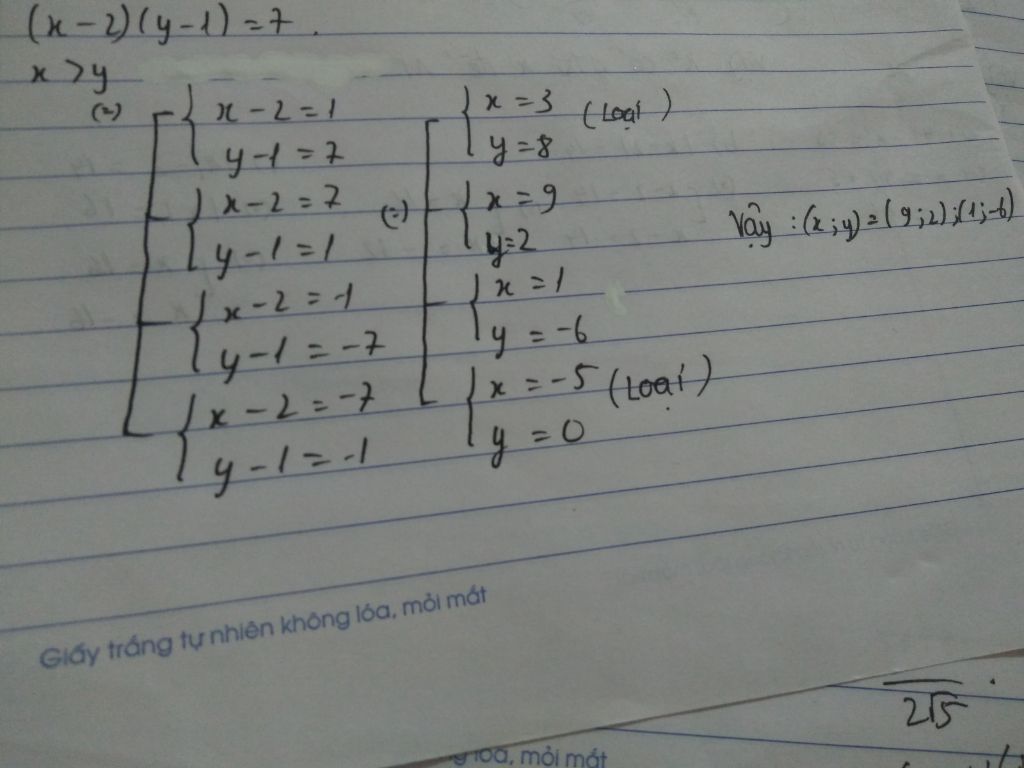 (x-2)(y-1)=7.
x>y
(=) x-2=1
y-1=7
x-2=7
y-1=1
x-2=-1
y-1=-7
x-2=-7
y-1=-1
(=) x=3 (Loại)
y=8
x=9
y=2
x=1
y=-6
x=-5 (Loại)
y=0
Vậy : (x;y)=(9;2);(1;-6)
Giấy trắng tự nhiên không lóa, mỏi mắt
2√5
lóa, mỏi mắt